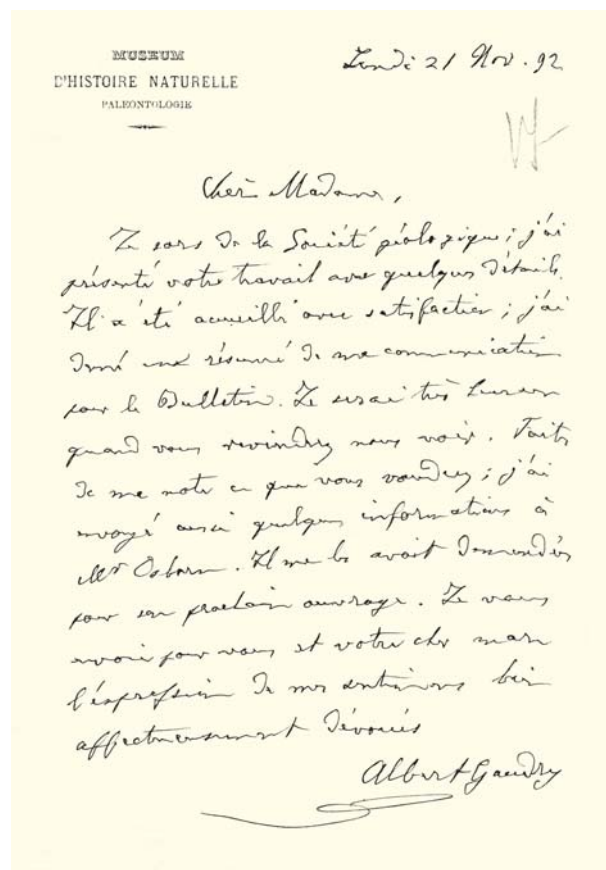 MUSEUM
D'HISTOIRE NATURELLE
PALEONTOLOGIE
Lundi 21 Nov. 92
Chère Madame,
Je sors de la Société géologique; j'ai
présenté votre travail avec quelques détails.
Il a été accueilli avec satisfaction; j'ai
donné un résumé de ma communication
pour le Bulletin. Je serai très heureux
quand vous reviendrez nous voir. Faites
de ma note ce que vous voudrez; j'ai
envoyé aussi quelques informations à
Mr Osborn. Il me les avait demandées
pour son prochain ouvrage. Je vous
envoie pour vous et votre cher mari
l'expression de mes sentiments bien
affectueusement dévoués
Albert Gaudry